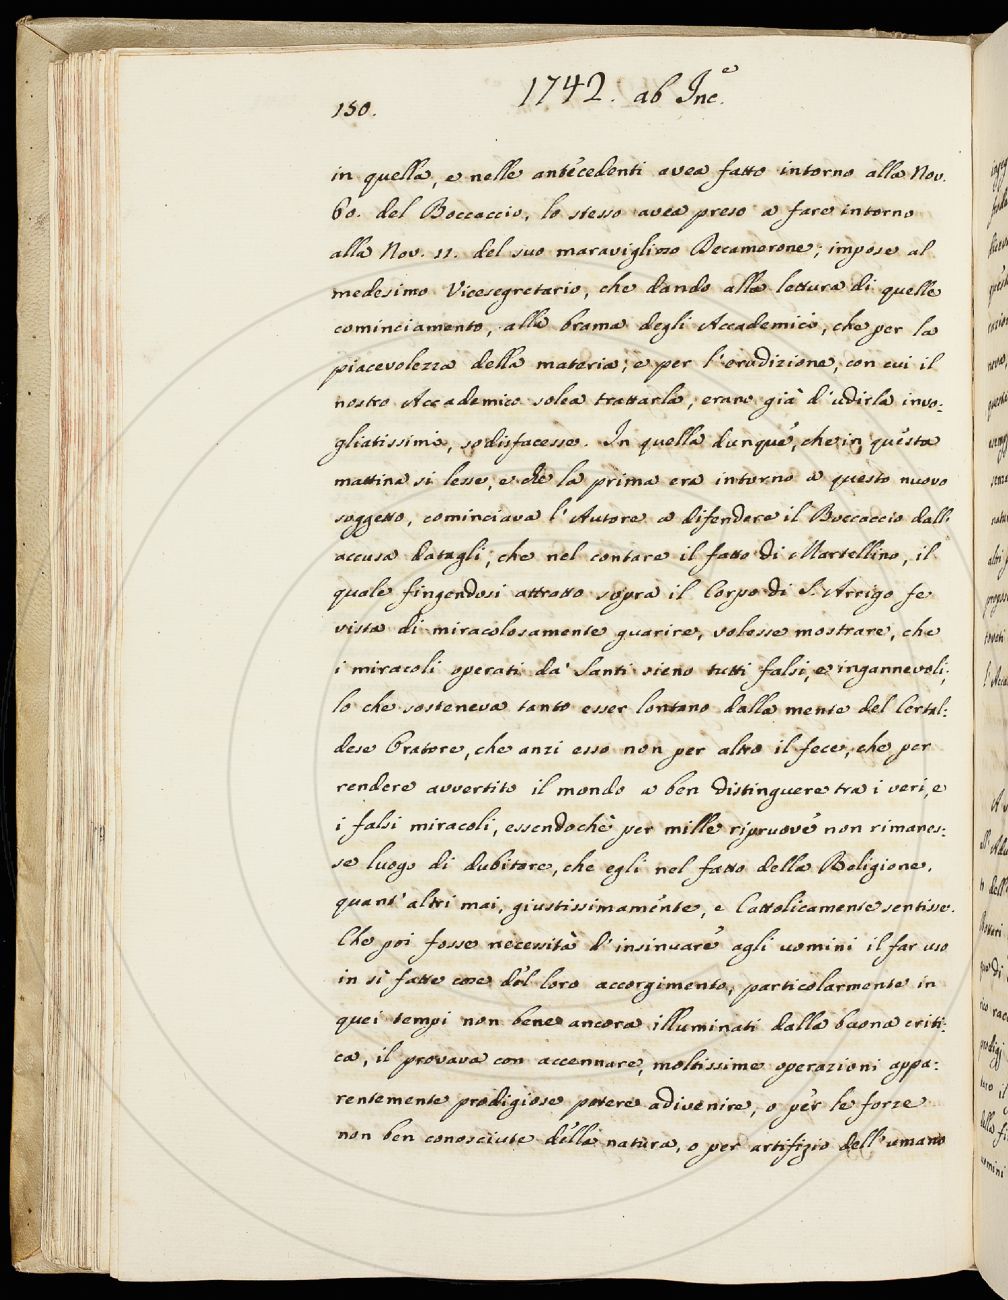 1742. ab Inc.e
150.
in quella, e nelle antecedenti avea fatto intorno alla Nov.
60. del Boccaccio, lo stesso avea preso a fare intorno
alla Nov. 11. del suo maraviglioso Decamerone; impose al
medesimo Vicesegretario, che dando alla lettura di quelle
cominciamento, alla brama degli Accademici, che per la
piacevolezza della materia, e per l'erudizione, con cui il
nostro Accademico solea trattarla, erano già d'udirla invo-
gliatissimi, sodisfacesse. In quella dunque, che in questa
mattina si lesse, e che la prima era intorno a questo nuovo
soggetto, cominciava l'Autore a difendere il Boccaccio dall'
accusa datagli, che nel contare il fatto di Martellino, il
quale fingendosi attratto sopra il Corpo di S. Arrigo fe
vista di miracolosamente guarire, volesse mostrare, che
i miracoli operati da' Santi sieno tutti falsi, e ingannevoli;
lo che sosteneva tanto esser lontano dalla mente del Certal-
dese Oratore, che anzi esso non per altro il fece, che per
rendere avvertito il mondo a ben distinguere tra i veri, e
i falsi miracoli, essendochè per mille ripruove non rimanes-
se luogo di dubitare, che egli nel fatto della Religione,
quant'altri mai, giustissimamente, e Cattolicamente sentisse.
Che poi fosse necessità d'insinuare agli uomini il far uso
in sì fatte cose del loro accorgimento, particolarmente in
quei tempi non bene ancora illuminati dalla buona criti-
ca, il provava con accennare, moltissime operazioni appa-
rentemente prodigiose potere adivenire, o per le forze
non ben conosciute della natura, o per artifizio dell'umano